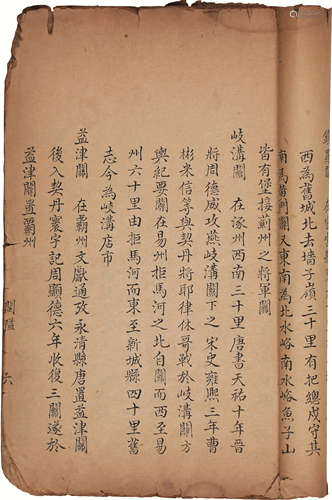 西為舊城北去墻子嶺三十里有把總戍守其
南馬黃峪關又東南為北水峪南水峪魚子山
皆有堡接薊州之將軍關
岐溝關 在涿州西南三十里唐書天祐十年晉
將周德威攻燕岐溝關下之宋史雍熙三年曹
彬米信等與契丹將耶律休哥戰於岐溝關方
輿紀要關在易州拒馬河之北自關而西至易
州六十里由拒馬河而東至新城縣四十里舊
志今為岐溝店市
益津關 在霸州文獻通攷永清縣唐置益津關
後入契丹寰宇記周顯德六年收復三關遂於
益津關置霸州
關隘 六